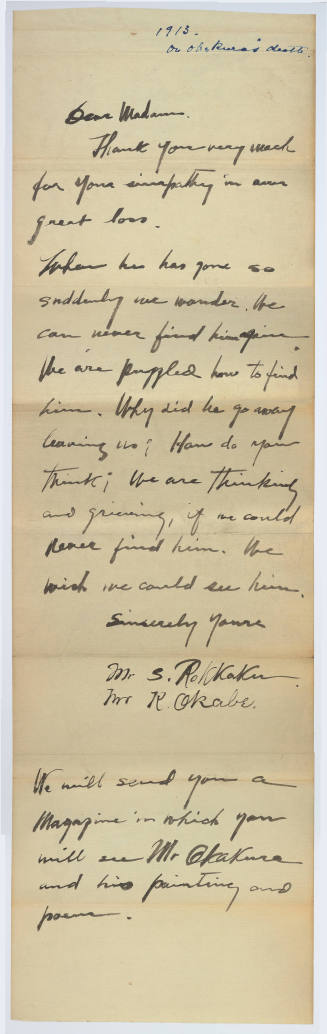 1913.
On Okakura's death.
Dear Madam.
Thank you very much
for your simpathy in our
great loss.
When he has gone so
suddenly we wonder. We
can never find him again.
We are puzzled how to find
him. Why did he go away
leaving us; How do you
think; We are thinking
and grieving, if we could
never find him. We
wish we could see him.
Sincerely yours
Mr S. Rokkaku.
Mr K. Okabe.
We will send you a
Magazine in which you
will see Mr Okakura
and his painting and
poem.